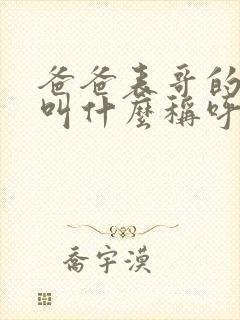 爸爸表哥的
叫什麼稱呼
喬宇漠